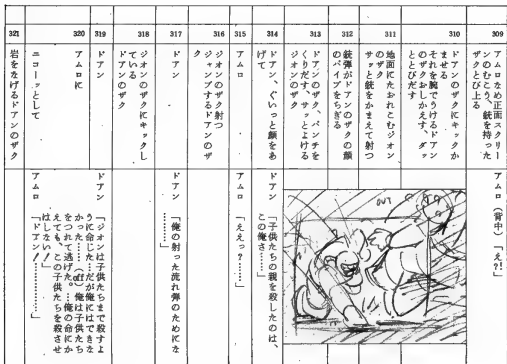 309
アムロなめ正面スクリー
ンのむこう、銃を持った
ザクとび上る
アムロ(背中)「え?!」
310
ドアンのザクにキックか
ませる
それを腕でうけるドアン
のザクおしかえす、ダッ
ととびだす
311
地面にたおれこむジオン
のザク
サッと銃をかまえて射つ
312
銃弾がドアンのザクの顔
のパイプをちぎる
313
ドアンのザク、パンチを
くりだす、サッとよける
ジオンのザク
OUT
314
ドアン、ぐいっと顔をあ
げて
ドアン「子供たちの親を殺したのは、
この俺さ……」
315
アムロ
アムロ「ええっ?……」
316
ジオンのザク射つ
ジャンプするドアンのザ
ク
317
ドアン
ドアン「俺の射った流れ弾のためにな
………」
318
ジオンのザクにキックし
ている
ドアンのザク
319
ドアン
ドアン「ジオンは子供たちまで殺すよ
うに命じた…だが俺にはできな
かった……(off)俺は子供たち
をつれて逃げた。…俺の命にか
えても、この子供たちを殺させ
はしない!」
320
アムロに
ニコーッとして
アムロ「ドアン!………」
321
岩をなげるドアンのザク